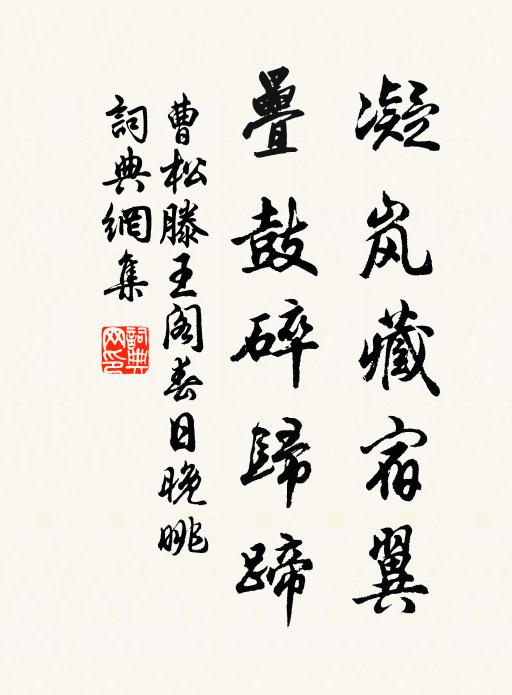 凝岚藏宿翼
疊鼓碎歸蹄
曹松滕王阁春日晚眺
詞典網集
詞典网印